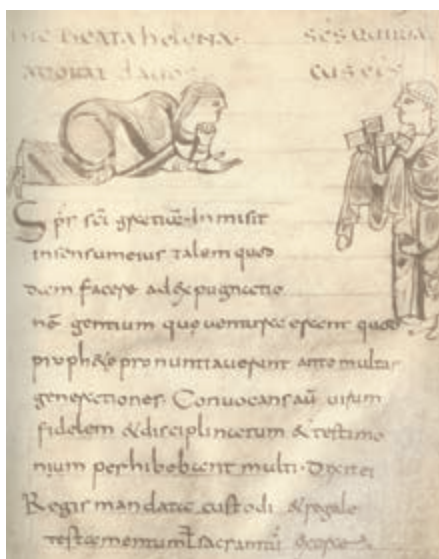 hic beata helena. scs quiria
adorat clauos cus eps
Sps sci gratiae. Inmisit
insensumeius talem quod
dam facere ad expugnatio
nē gentium que uenturae essent quod
proph&e pronuntiauerunt ante multas
generationes. Conuocans aū uirum
fidelem & disciplinatum & testimo
nium perhibebant multi. Dixitei
Regis mandata custodi & regale
testamentum